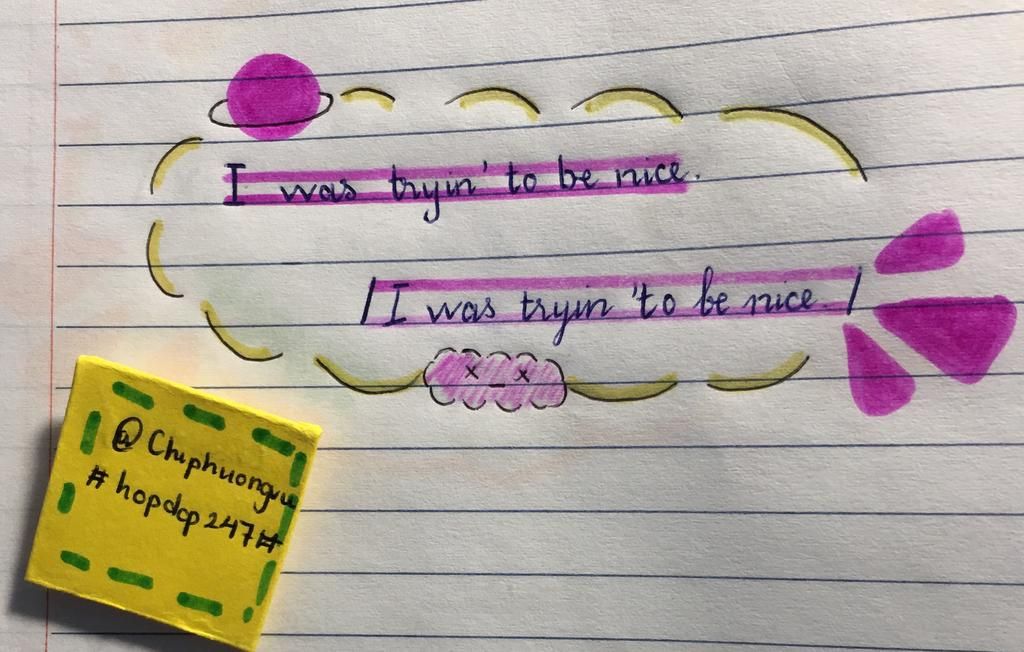 I was tryin' to be nice.
/ I was tryin 'to be nice. /
@Chiphuongvu
#hopdop247#